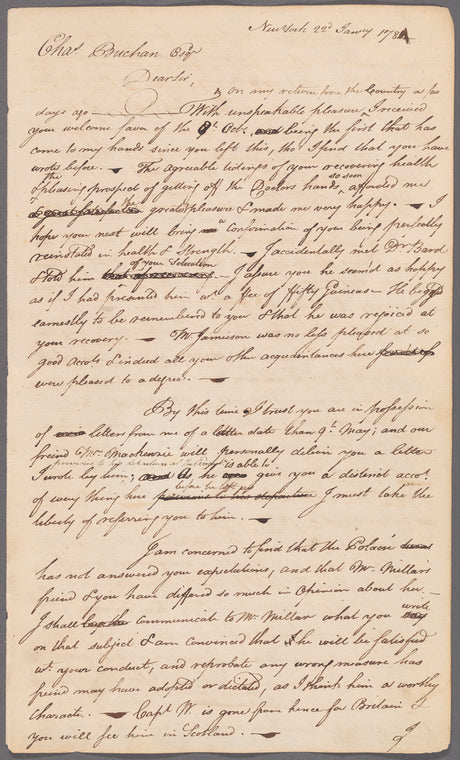 New York 22d Janry 178
Chas. Buchan Esqr
Dear Sir,
on my return from the Country a few
days ago With unspeakable pleasure I received
you welcome favor of the 9th Octr. and being the first that has
come to my hands since you left this, tho I find that you have
wrote before. — The agreeable tidings of your recovering health
the so soon
& pleasing prospect of getting off the Doctors hands afforded me
the greatest pleasure & made me very happy. — I
hope your next will bring a confirmation of your being perfectly
reinstated in health & Strength. — I accidentally met Dr Bard
of your Salvation
& told him I assure you he seem'd as happy
as if I had presented him wt. a ffee of ffifty Guineas — He beg'd
earnestly to be remember'd to you & that he was rejoiced at
your recovery. — Mr Jameison was no less pleased at so
good Accots & indeed all your other acquaintances here
were pleased to a degree. —
By this time I trust you are in possession
of letters from me of a later date than 9th. May; and our
friend Mr. Mackenzie will personally deliver you a letter
previous to his departure
I wrote by him; and As he is able to give you a distinct accot.
of every thing here previous to his departure I must take the
liberty of referring you to him. —
I am concerned to find that the
has not answered your expectations, and that Mr. Millar's
friend & you have differed so much in Opinion about her. —
wrote
I shall communicate to Mr Millar what you say
on that subject & am convinced that he will be satisfied
wt. your conduct, and reprobate any wrong measure his
friend may have adopted or dictated, as I think him a worthy
Character. — Capt W. is gone from hence for Britain &
you will see him in Scotland. —